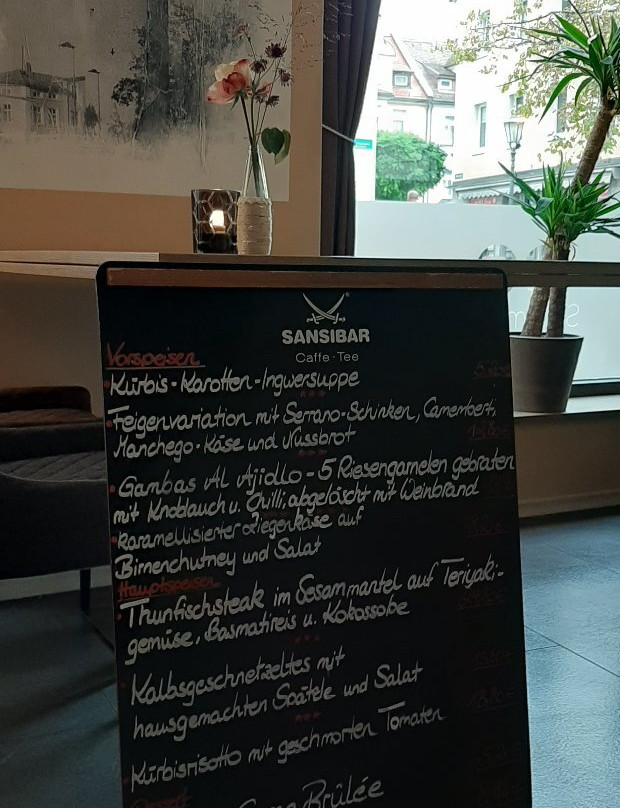 SANSIBAR
Caffe · Tee
Vorspeisen
Kürbis - Karotten - Ingwersuppe
Feigenvariation mit Serrano-Schinken, Camembert,
Manchego-Käse und Nussbrot
Gambas Al Ajiollo - 5 Riesengarnelen gebraten
mit Knoblauch u. Chilli, abgelöscht mit Weinbrand
karamellisierter Ziegenkäse auf
Birnenchutney und Salat
Hauptspeisen
Thunfischsteak im Sesammantel auf Teriyaki-
gemüse, Basmatireis u. Kokossoße
Kalbsgeschnetzeltes mit
hausgemachten Spätzle und Salat
Kürbisrisotto mit geschmorten Tomaten
Brûlée